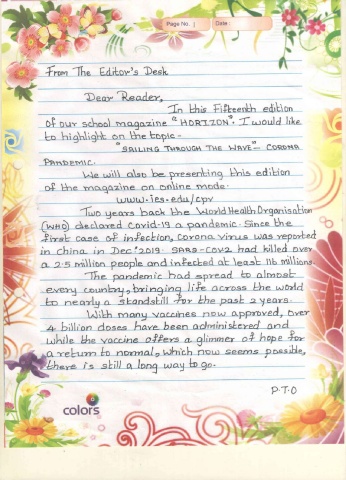 Page No. 1 Date:
From The Editor's Desk
Dear Reader,
In this Fifteenth edition
of our school magazine "HORIZON". I would like
to highlight on the topic-
"SAILING THROUGH THE WAVE" - CORONA
PANDEMIC.
We will also be presenting this edition
of the magazine on online mode.
www.ies.edu/cpv
Two years back the World Health Organisation
(WHO) declared Covid-19 a pandemic. Since the
first case of infection, Corona virus was reported
in China in Dec' 2019. SARS-COV2 had killed over
a 2.5 million people and infected at least 116 millions.
The pandemic had spread to almost
every country, bringing life across the world
to nearly a standstill for the past 2 years.
With many vaccines now approved, over
4 billion doses have been administered and
while the vaccine offers a glimmer of hope for
a return to normal, which now seems possible,
there is still a long way to go.
P.T.O
colors